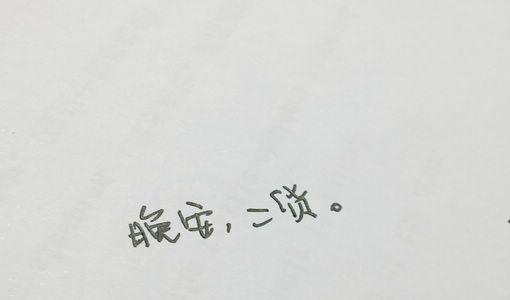 晚安，二货。